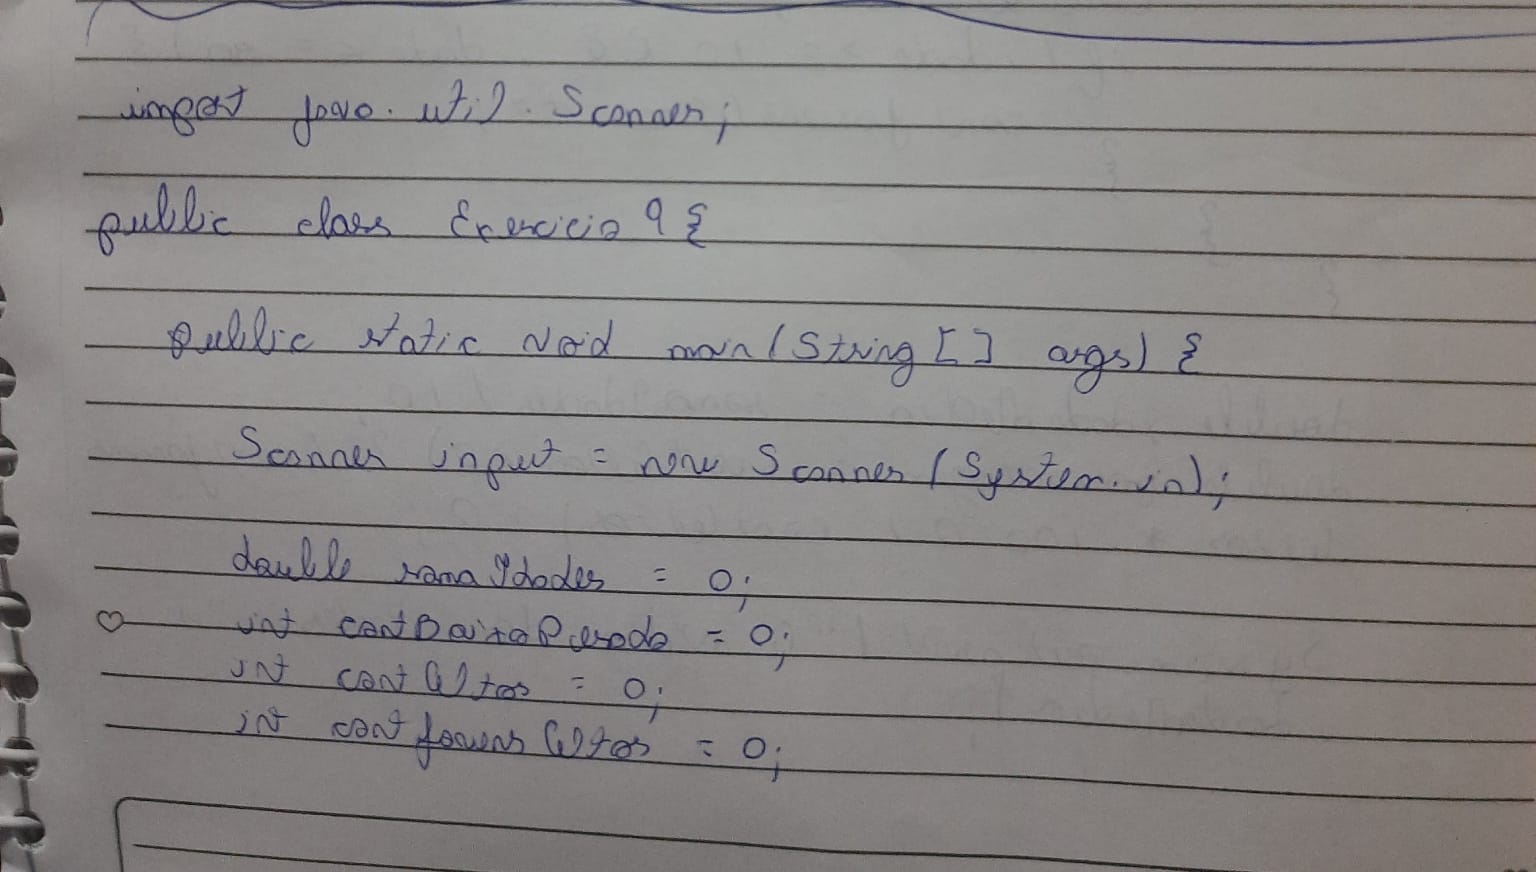 import java.util.Scanner;
public class Exercicio9 {
public static void main(String[] args) {
Scanner input = new Scanner(System.in);
double somaIdades = 0;
int contBaixoPesado = 0;
int contAltos = 0;
int contJovensAltos = 0;